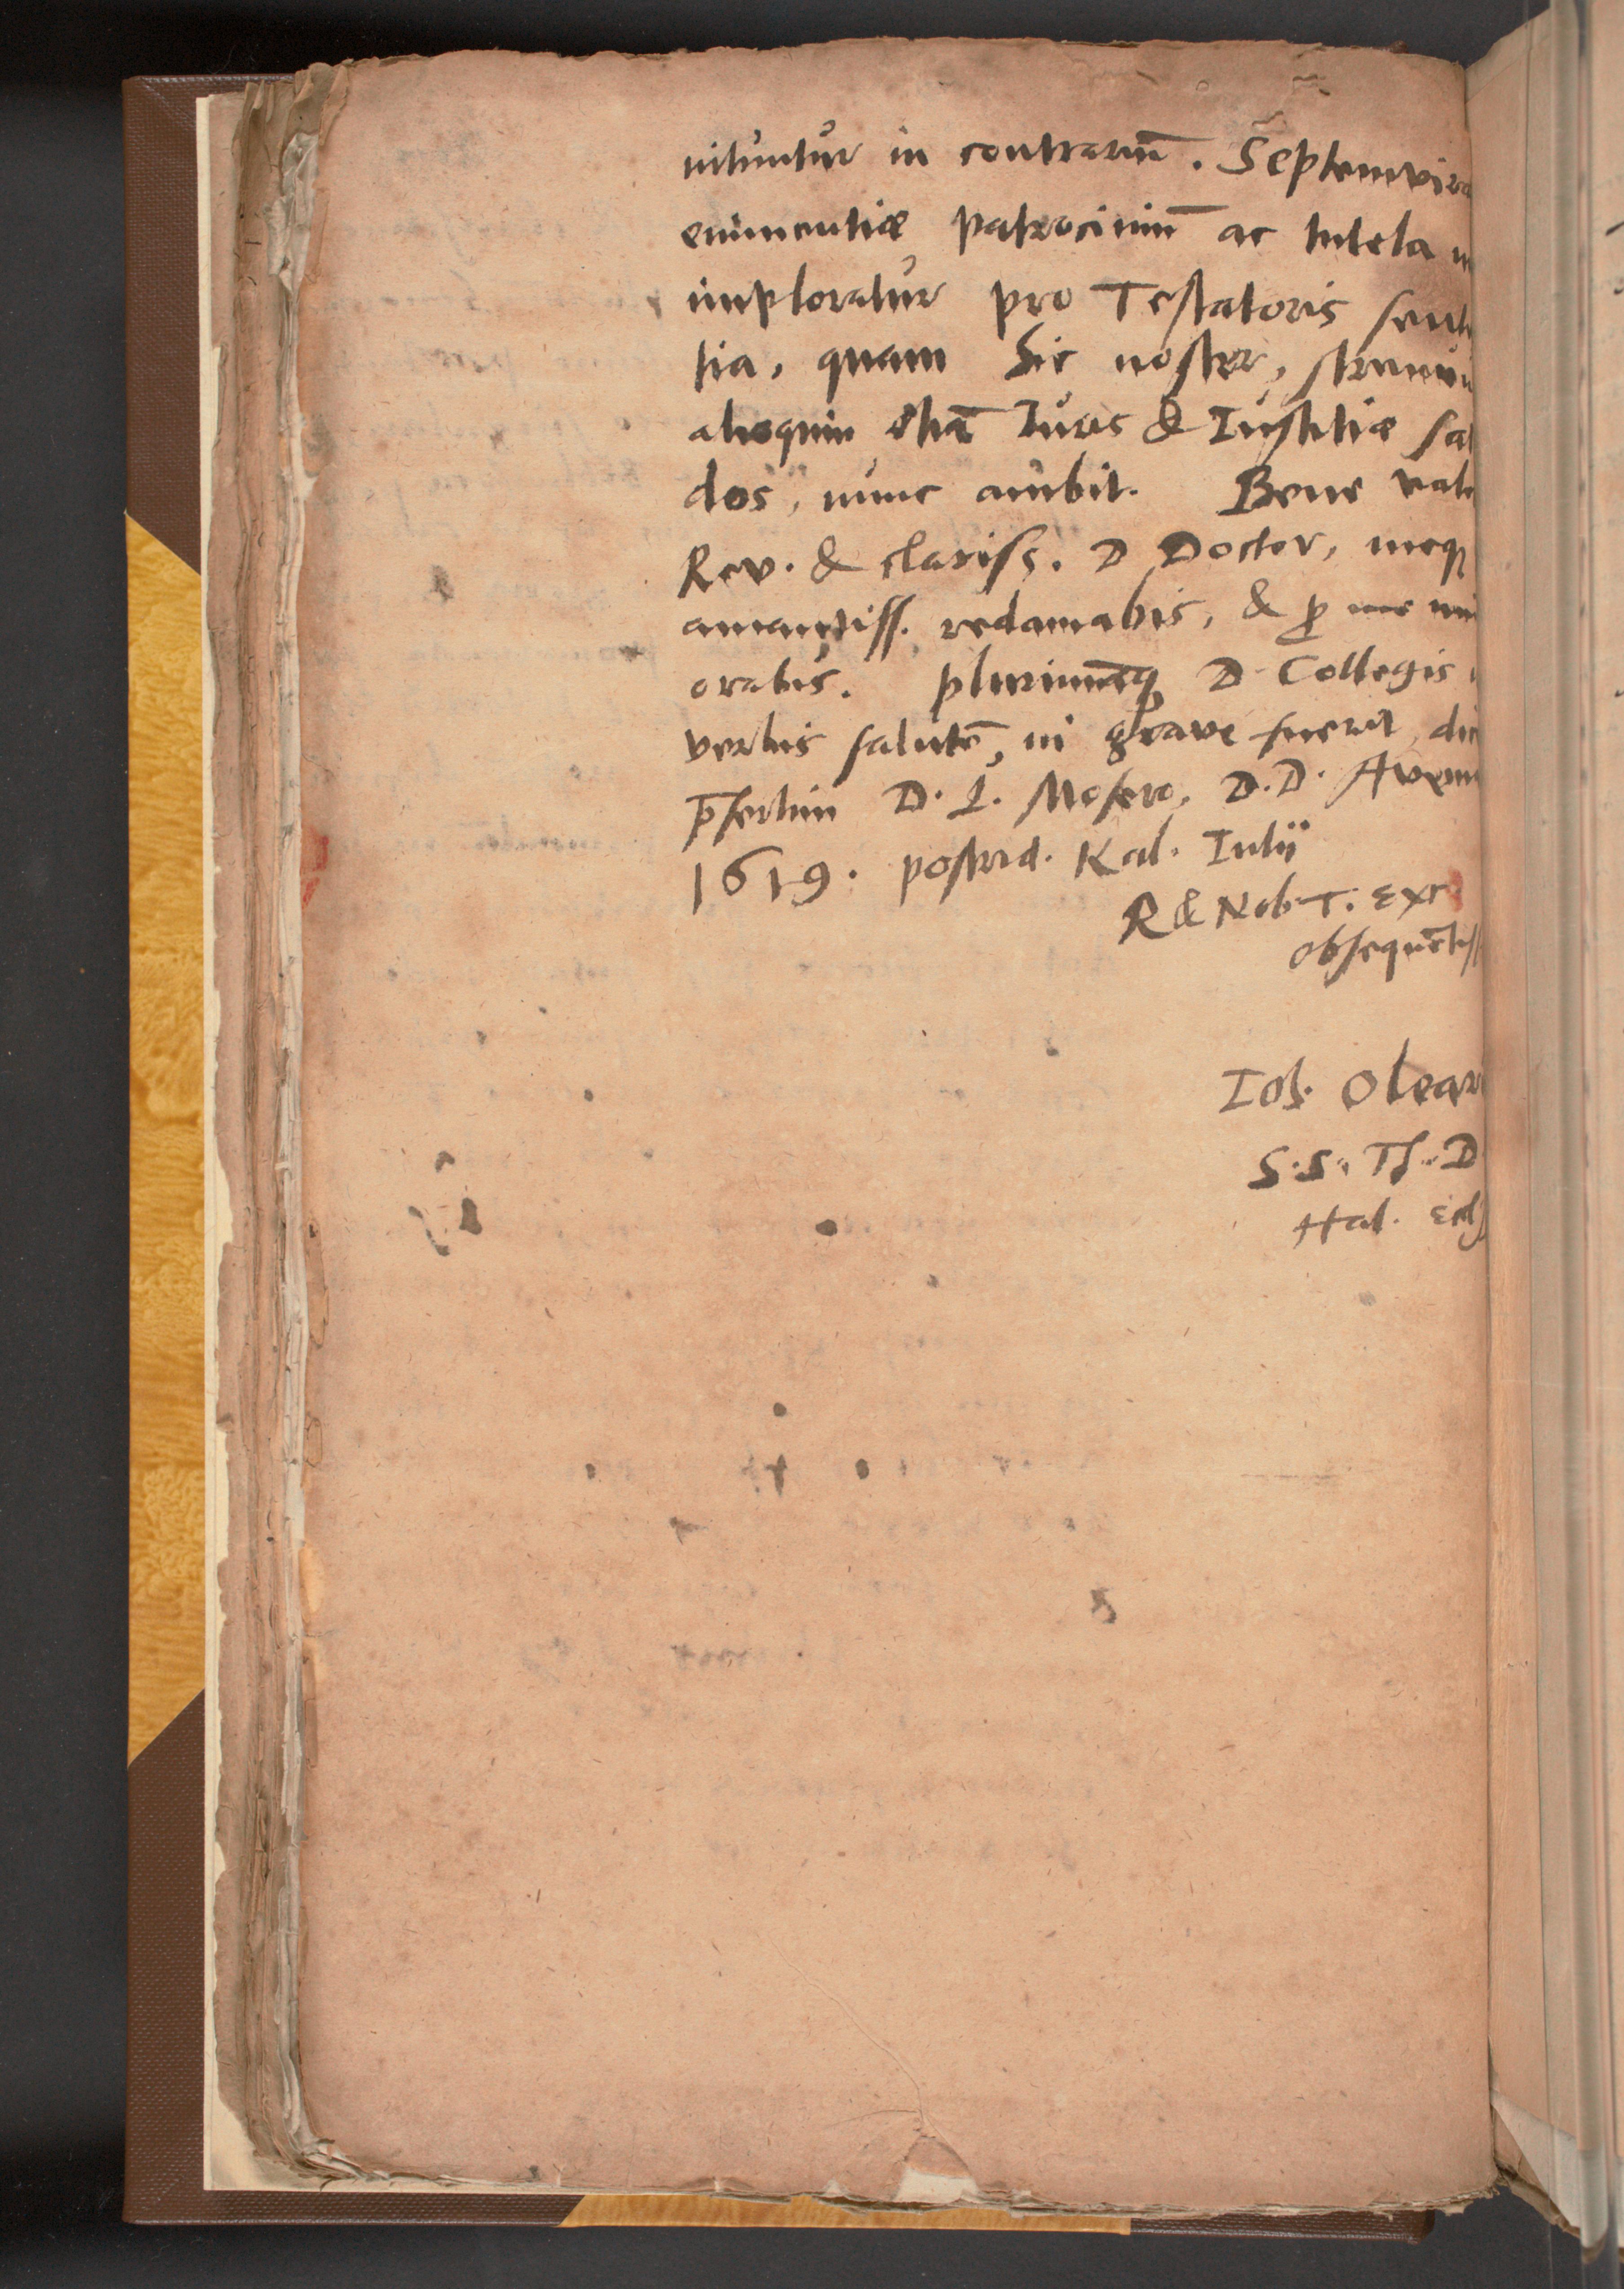 nituntur in contrariū. Septemvira
eminentiæ patrociniū ac tutela
imploratur pro Testatoris senten
tia, quam hic noster, strenuu
alioquin etiā Iuris & Iustitiæ
dos, nunc ambit. Bene vale
Rev. & clariss. D Doctor, meq
amantiss. redamabis, & ꝓ me
orabis. plurimāq D. Collegis
verbis salutē, ni grave fuerit, dic
p̄sertim D. L. Mosero, D. D. Aven
1619. postrid. Kal. Iulii
R & Nob. T. Exc
obsequētiss
Ioh. Olear
S. S. Th. D
Hal. Eccl